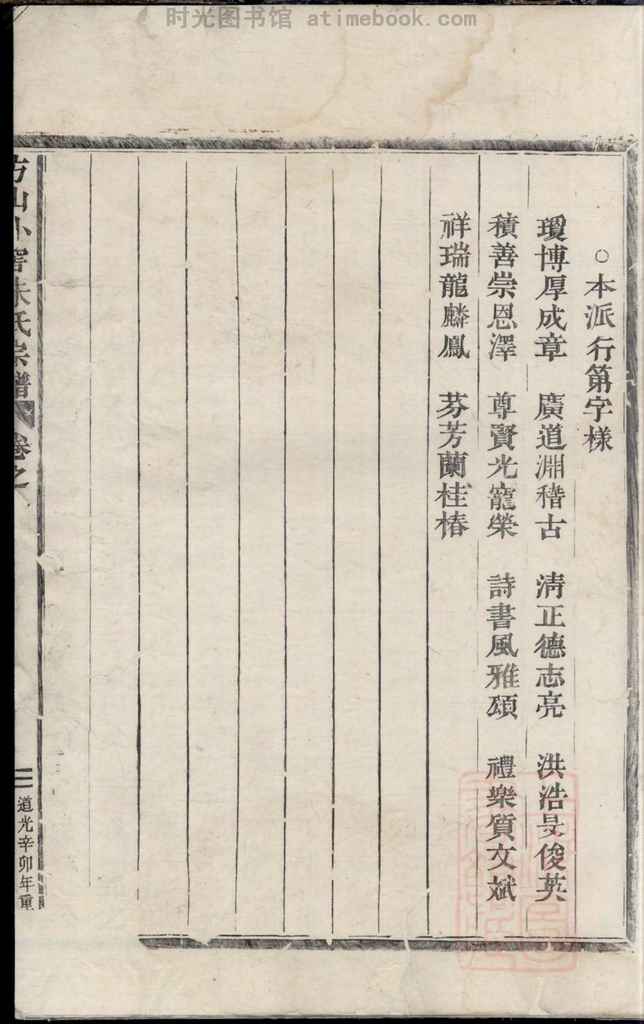 时光图书馆 atimebook.com
○本派行第字様
瓊博厚成章 廣道淵稽古 清正德志亮 洪浩旻俊英
積善崇恩澤 尊賢光寵榮 詩書風雅頌 禮樂質文斌
祥瑞龍麟鳳 芬芳蘭桂椿
方山小窖朱氏宗譜 卷之
二 道光辛卯年重